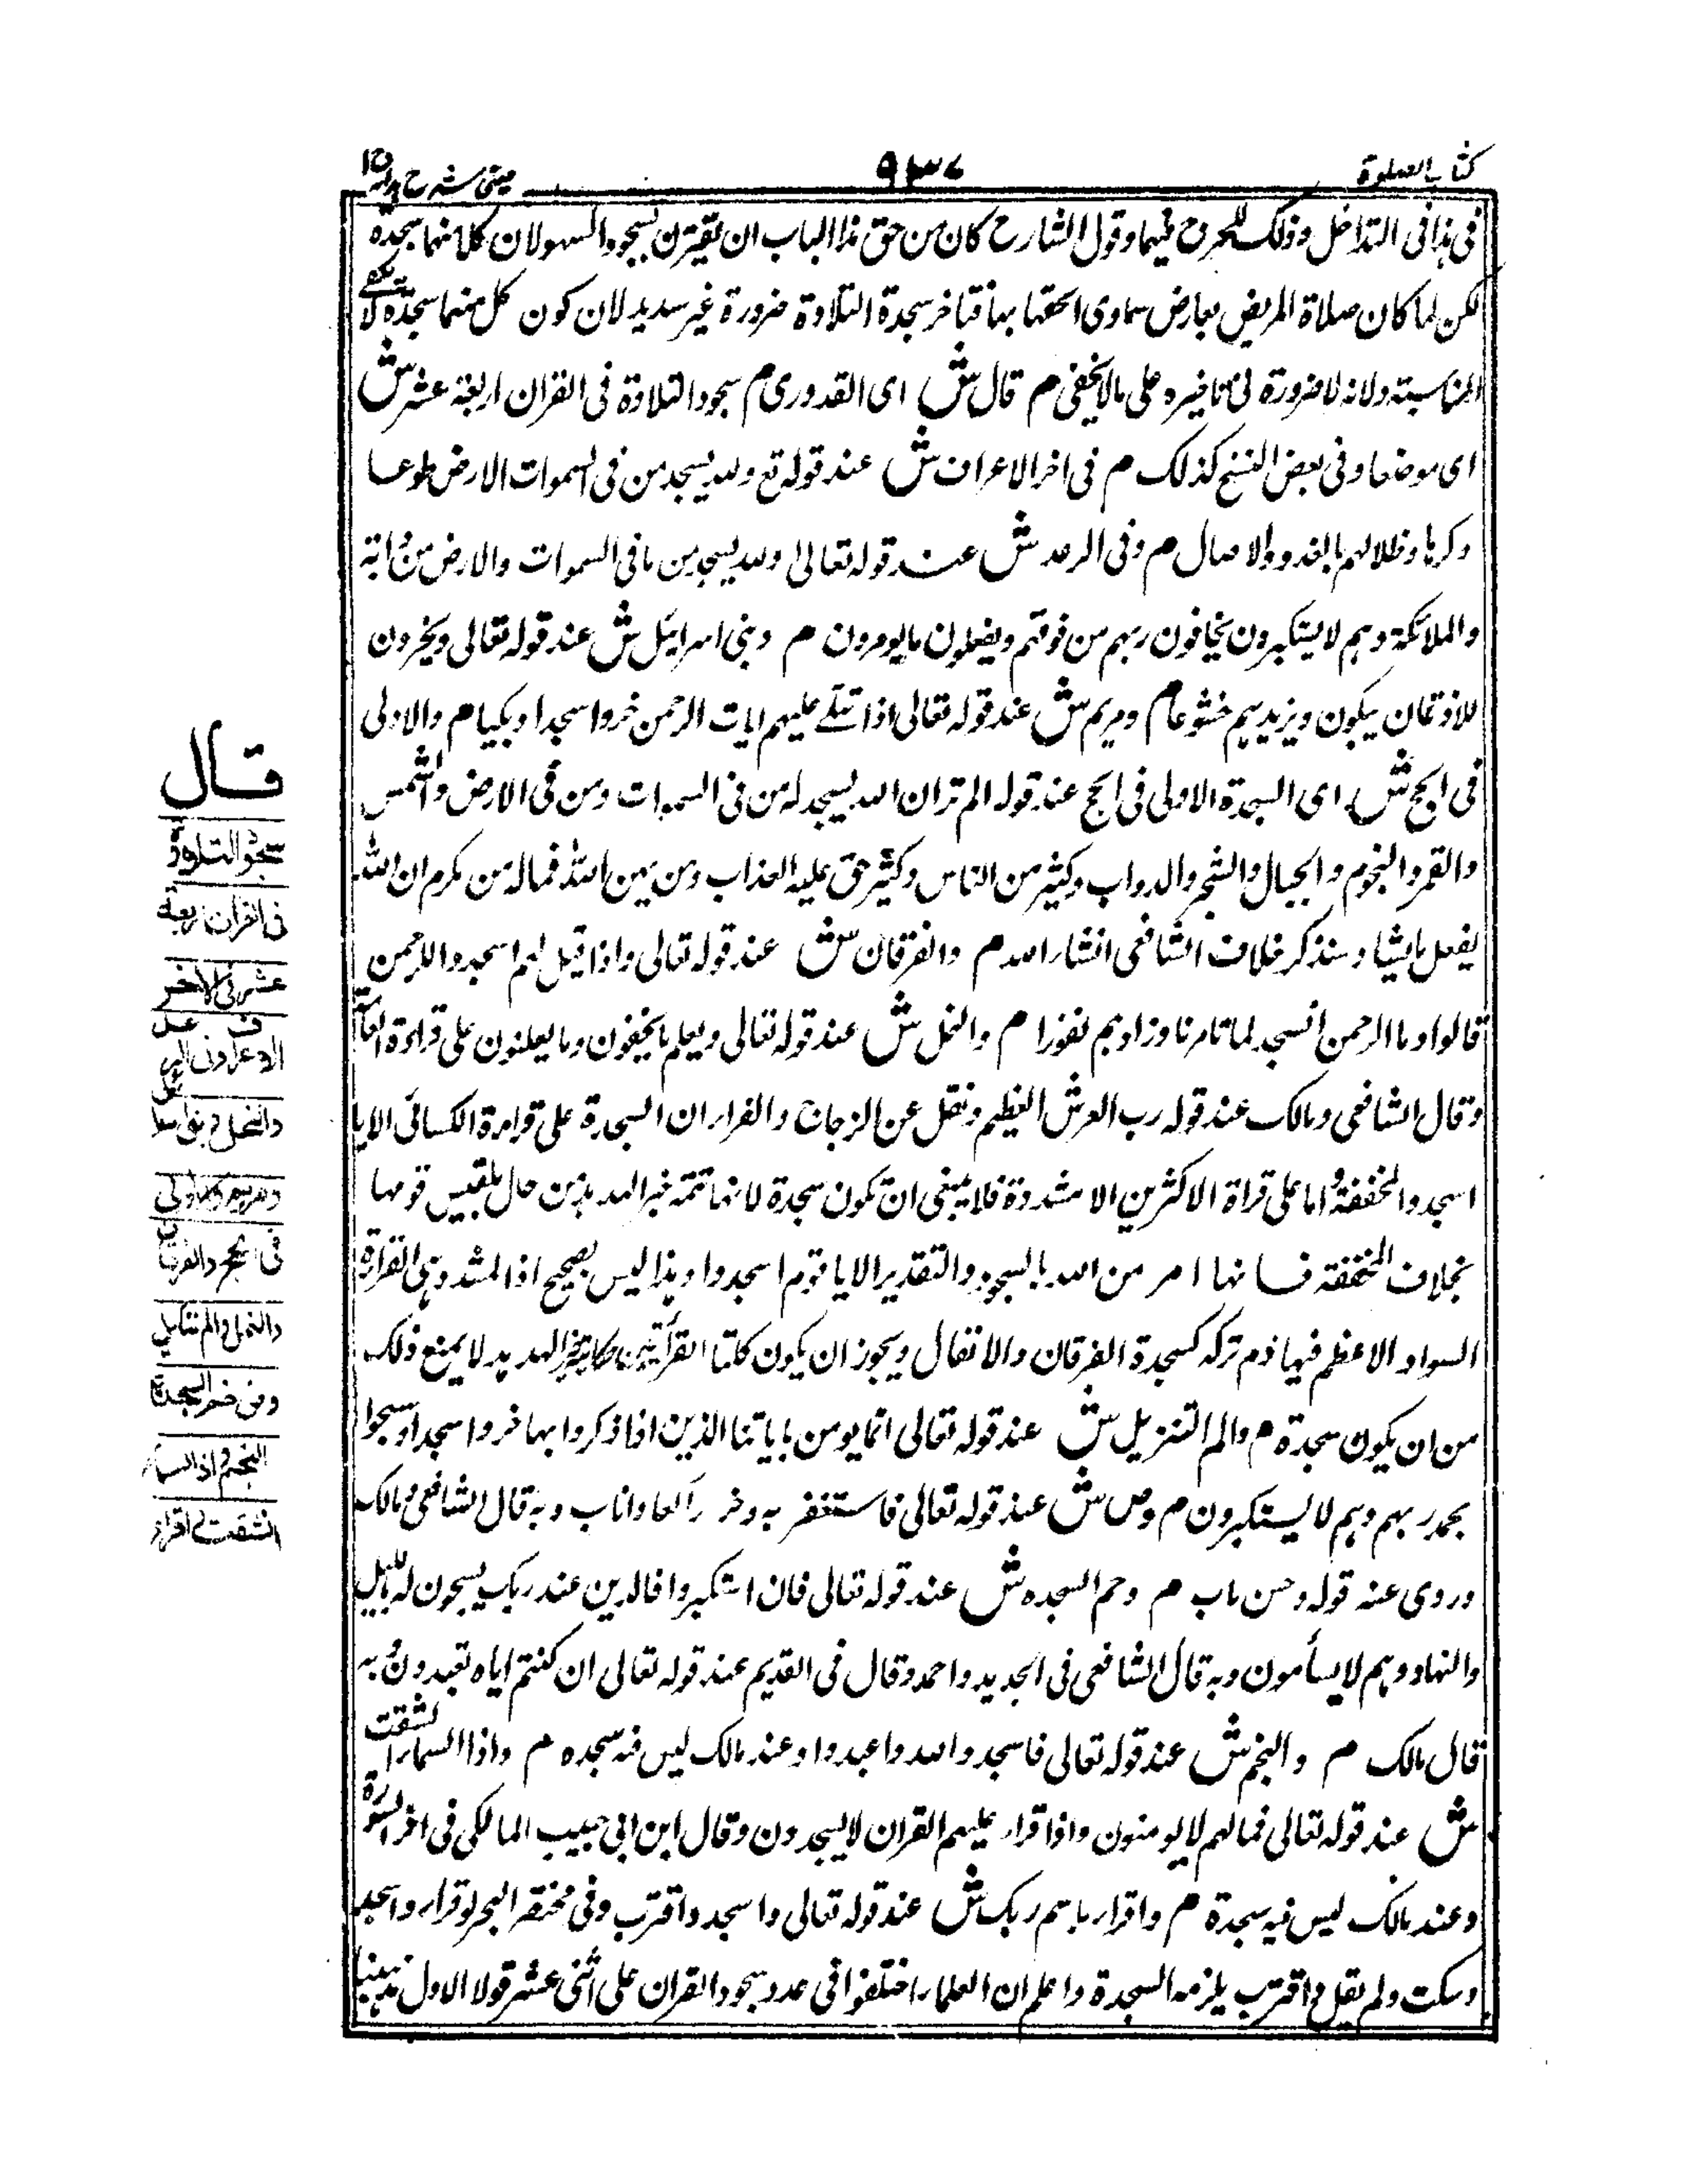 كتاب الصلوة
٩٣٧
عينى شرح هدايه ج١
فى هذا فى التداخل وذلك للحرج فيهما وقول الشارح كان من حق هذا الباب ان يقترن بسجود السهو لان كلا منهما سجدة
لكن لما كان صلاة المريض بعارض سماوى الحقها بها فتاخر سجدة التلاوة ضرورة غير سديد لان كون كل منهما سجدة لا تكفى
المناسبة ولانه لا ضرورة فى تاخيره على مالا يخفى م قال ش اى القدورى م سجود التلاوة فى القران اربعة عشر ش
اى موضعا وفى بعض النسخ كذلك م فى اخر الاعراف ش عند قوله تع ولله يسجد من فى السموات الارض طوعا
وكرها وظلالهم بالغدو والاصال م وفى الرعد ش عند قوله تعالى ولله يسجد من مافى السموات والارض من دابة
والملائكة وهم لا يستكبرون يخافون ربهم من فوقهم ويفعلون ما يومرون م وبنى اسرائيل ش عند قوله تعالى ويخرون
للاذقان يبكون ويزيدهم خشوعا م ومريم ش عند قوله تعالى اذا تتلى عليهم ايات الرحمن خروا سجدا وبكيا م والاولى
فى الحج ش اى السجدة الاولى فى الحج عند قوله الم تر ان الله يسجد له من فى السموات ومن فى الارض والشمس
والقمر والنجوم والجبال والشجر والدواب وكثير من الناس وكثير حق عليه العذاب ومن يهن الله فماله من مكرم ان الله
يفعل ما يشا وسنذكر خلاف الشافعى انشاء الله م والفرقان ش عند قوله تعالى واذا قيل لهم اسجدوا للرحمن
قالوا وما الرحمن انسجد لما تامرنا وزادهم نفورا م والنمل ش عند قوله تعالى ويعلم ما يخفون وما يعلنون على قراءة العامة
وقال الشافعى ومالك عند قوله رب العرش العظيم ونقل عن الزجاج والفراء ان السجدة على قراءة الكسائى الا يا
اسجدوا المخففة واما على قراة الاكثرين الا مشددة فلا ينبغى ان تكون سجدة لانها تتمة خبر الهدهد من حال بلقيس قومها
بخلاف المخففة فانها امر من الله بالسجود والتقدير الا يا قوم اسجدوا وهذا ليس بصحيح اذ المشدد وهى القراة
السواد الاعظم فيها ذم تركه كسجدة الفرقان والانفال ويجوز ان يكون كلتا القرأتين حكاية خبر الهدهد لا يمنع ذلك
من ان يكون سجدة م والم التنزيل ش عند قوله تعالى انما يومن باياتنا الذين اذا ذكروا بها خروا سجدا وسبحوا
بحمد ربهم وهم لا يستكبرون م وص ش عند قوله تعالى فاستغفر به وخر راكعا واناب وبه قال الشافعى ومالك
وروى عنه قوله وحسن ماب م وحم السجده ش عند قوله تعالى فان استكبروا فالذين عند ربك يسبحون له بالليل
والنهار وهم لا يسأمون وبه قال الشافعى فى الجديد واحمد وقال فى القديم عند قوله تعالى ان كنتم اياه تعبدون وبه
قال مالك م والنجم ش عند قوله تعالى فاسجدوا لله واعبدوا وعند مالك ليس فيه سجده م واذا السماء انشقت
ش عند قوله تعالى فما لهم لا يومنون واذا قراء عليهم القران لا يسجدون وقال ابن ابى حبيب المالكى فى اخر السورة
وعند مالك ليس فيه سجدة م واقراء باسم ربك ش عند قوله تعالى واسجد واقترب وفى مختصر البحر لو قراء واسجد
وسكت ولم يقل واقترب يلزمه السجدة واعلم ان العلماء اختلفوا فى عدد سجود القران على اثنى عشر قولا الاول مذهبنا
قال
سجود التلاوة
فى القران اربعة
عشر فى الاخر
الاعراف وفى الرعد
والنحل وبنى اسرا
ومريم والاولى
فى الحج والفرقان
والنمل والم تنزيل
وص وحم السجدة
النجم واذا السماء
انشقت واقراء